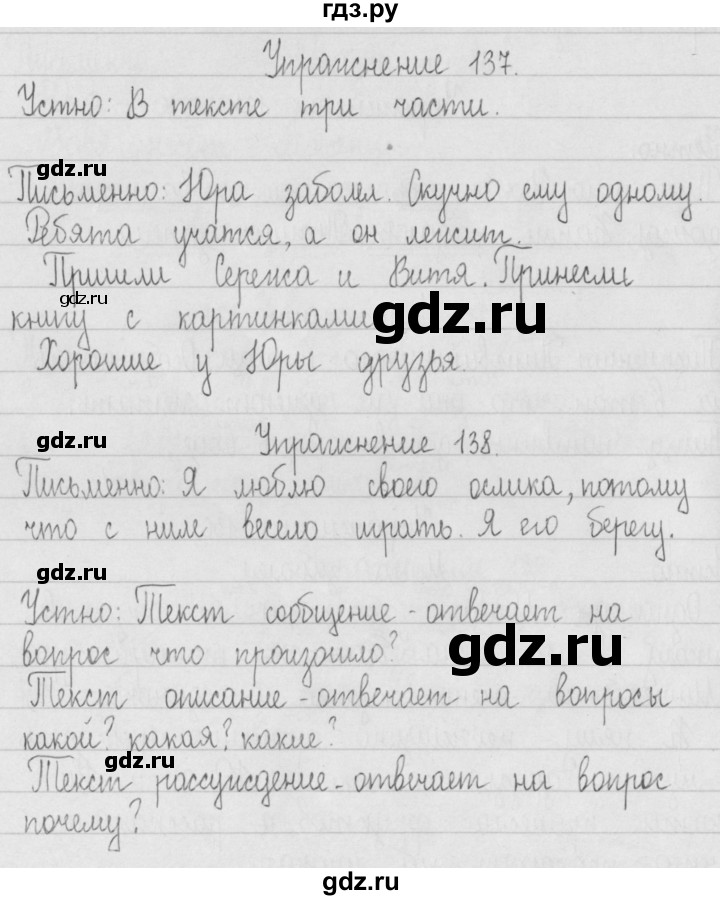 гдз.ру
Упражнение 137.
Устно: В тексте три части.
gdz.ru
Письменно: Юра заболел. Скучно ему одному.
Ребята учатся, а он лежит.
Пришли Сережа и Витя. Принесли
gdz.ru
книгу с картинками
gdz.ru
Хорошие у Юры друзья.
gdz.ru
Упражнение 138.
Письменно: Я люблю своего ослика, потому
что с ним весело играть. Я его берегу.
gdz.ru
Устно: Текст сообщение - отвечает на
вопрос что произошло?
gdz.ru
Текст описание - отвечает на вопросы
какой? какая? какие?
gdz.ru
Текст рассуждение - отвечает на вопрос
почему?
gdz.ru